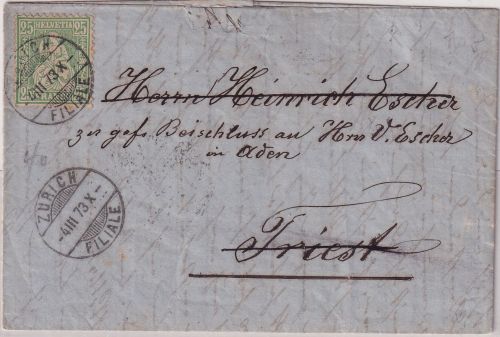 25 HELVETIA 25
ZURICH
-4III 73 X-
FILIALE
Herrn Heinrich Escher
zu gefl. Beischluss an Hrn V. Escher
in Aden
Triest
ZURICH
-4III 73 X-
FILIALE